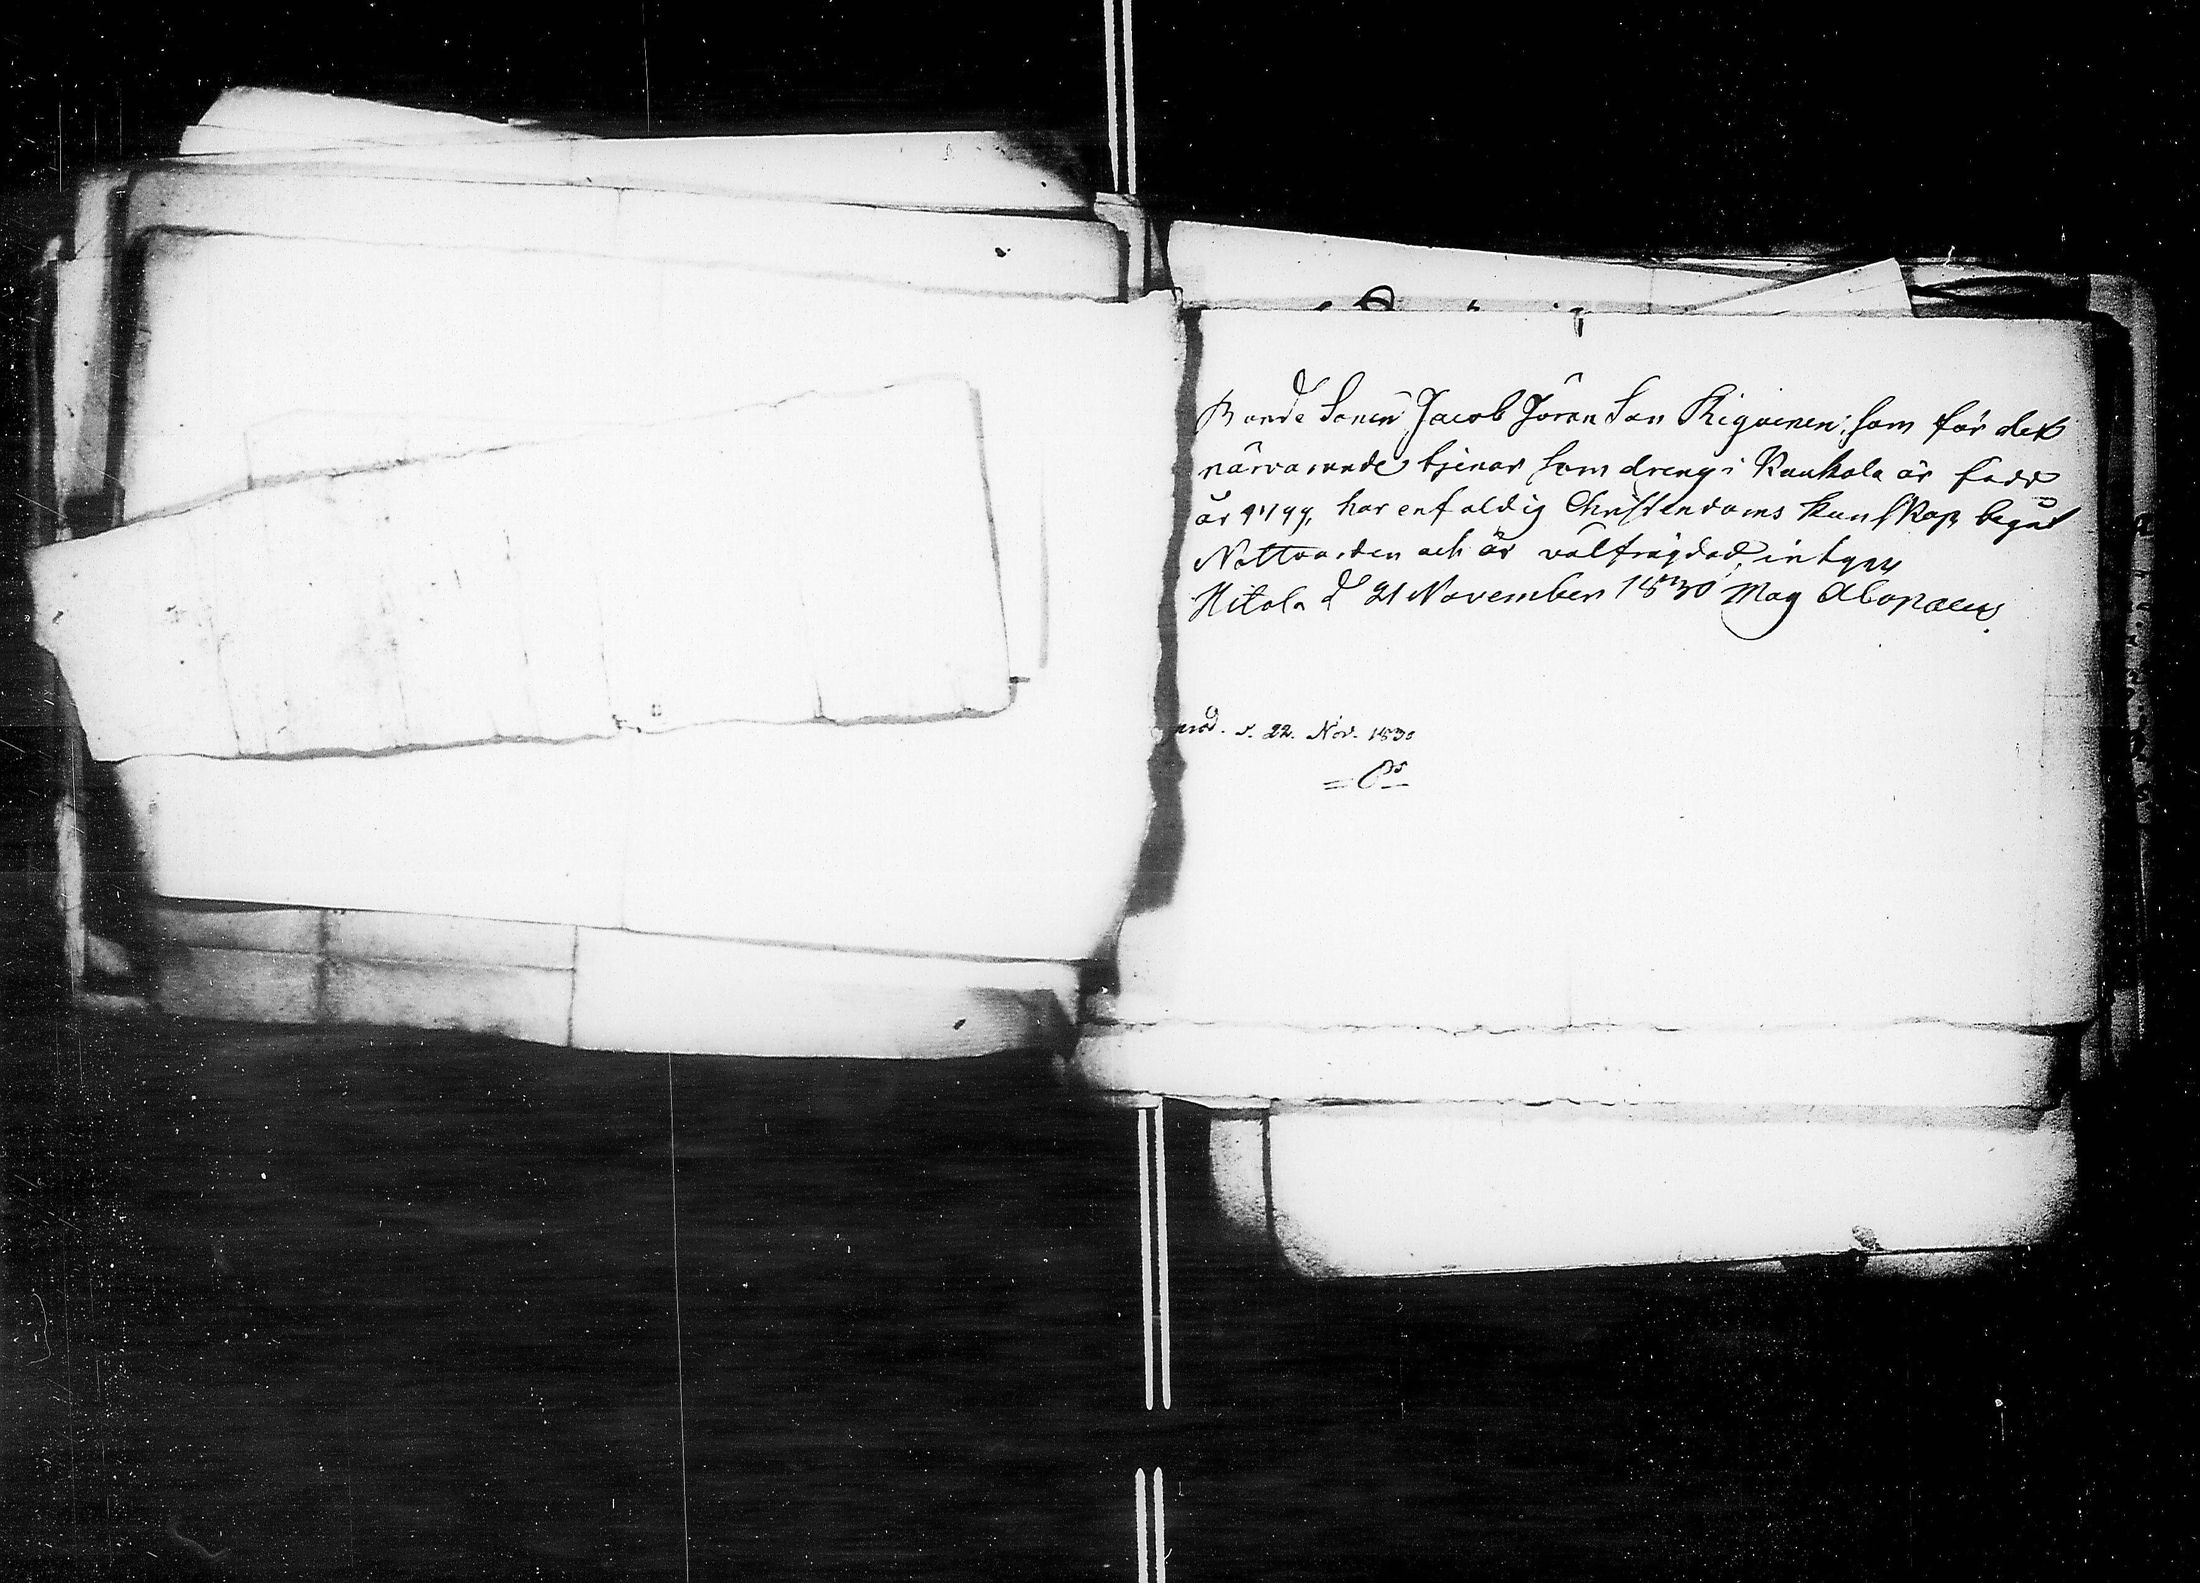 Bonde Sonen Jacob Jöran Son Rigoinen, som för det
närvarande tjenar som dreng i Kaukola är född
år 1799, har enfaldig Christendoms Kunskap begåt
Nattvarden och är välfrägdad, intygar
Hitola d 21 November 1830 Mag Alopaeus.
prod. d. 22. Nov. 1830